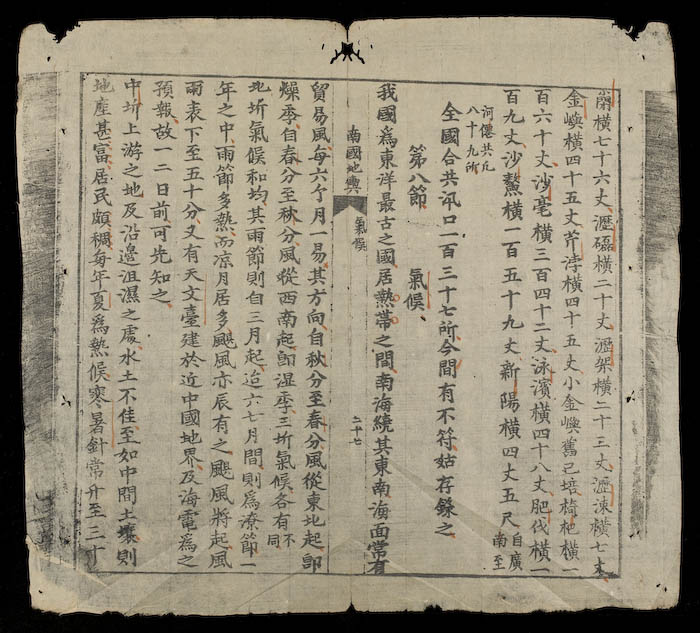 蘭橫七十六丈瀝磊橫二十丈瀝架橫二十三丈瀝涑橫七丈
金嶼橫四十五丈芹浡橫四十五丈小金嶼舊已培椅杷橫一
百六十丈沙亳橫三百四十二丈泳濱橫四十八丈肥伐橫一
百九丈沙鰲橫一百五十九丈新陽橫四丈五尺自廣
南至
河僊共凡
八十九所
全國合共汛口一百三十七所今間有不符姑存錄之
第八節 氣候
我國爲東洋最古之國居熱帶之間南海繞其東南海面常有
南國地輿 氣候 二十七
貿易風每六个月一易其方向自秋分至春分風從東北起卽
燥季自春分至秋分風從西南起卽湿季三圻氣候各有不
同
北圻氣候和均其雨節則自三月起迨六七月間則爲潦節一
年之中雨節多熱而凉月居多颷風亦辰有之颷風將起風
雨表下至五十分又有天文臺建於近中國地界及海電爲之
預報故一二日前可先知之
中圻上游之地及沿邊沮濕之處水土不佳至如中間土壤則
地產甚富居民頗稠每年夏爲熱候寒暑針常升至三十